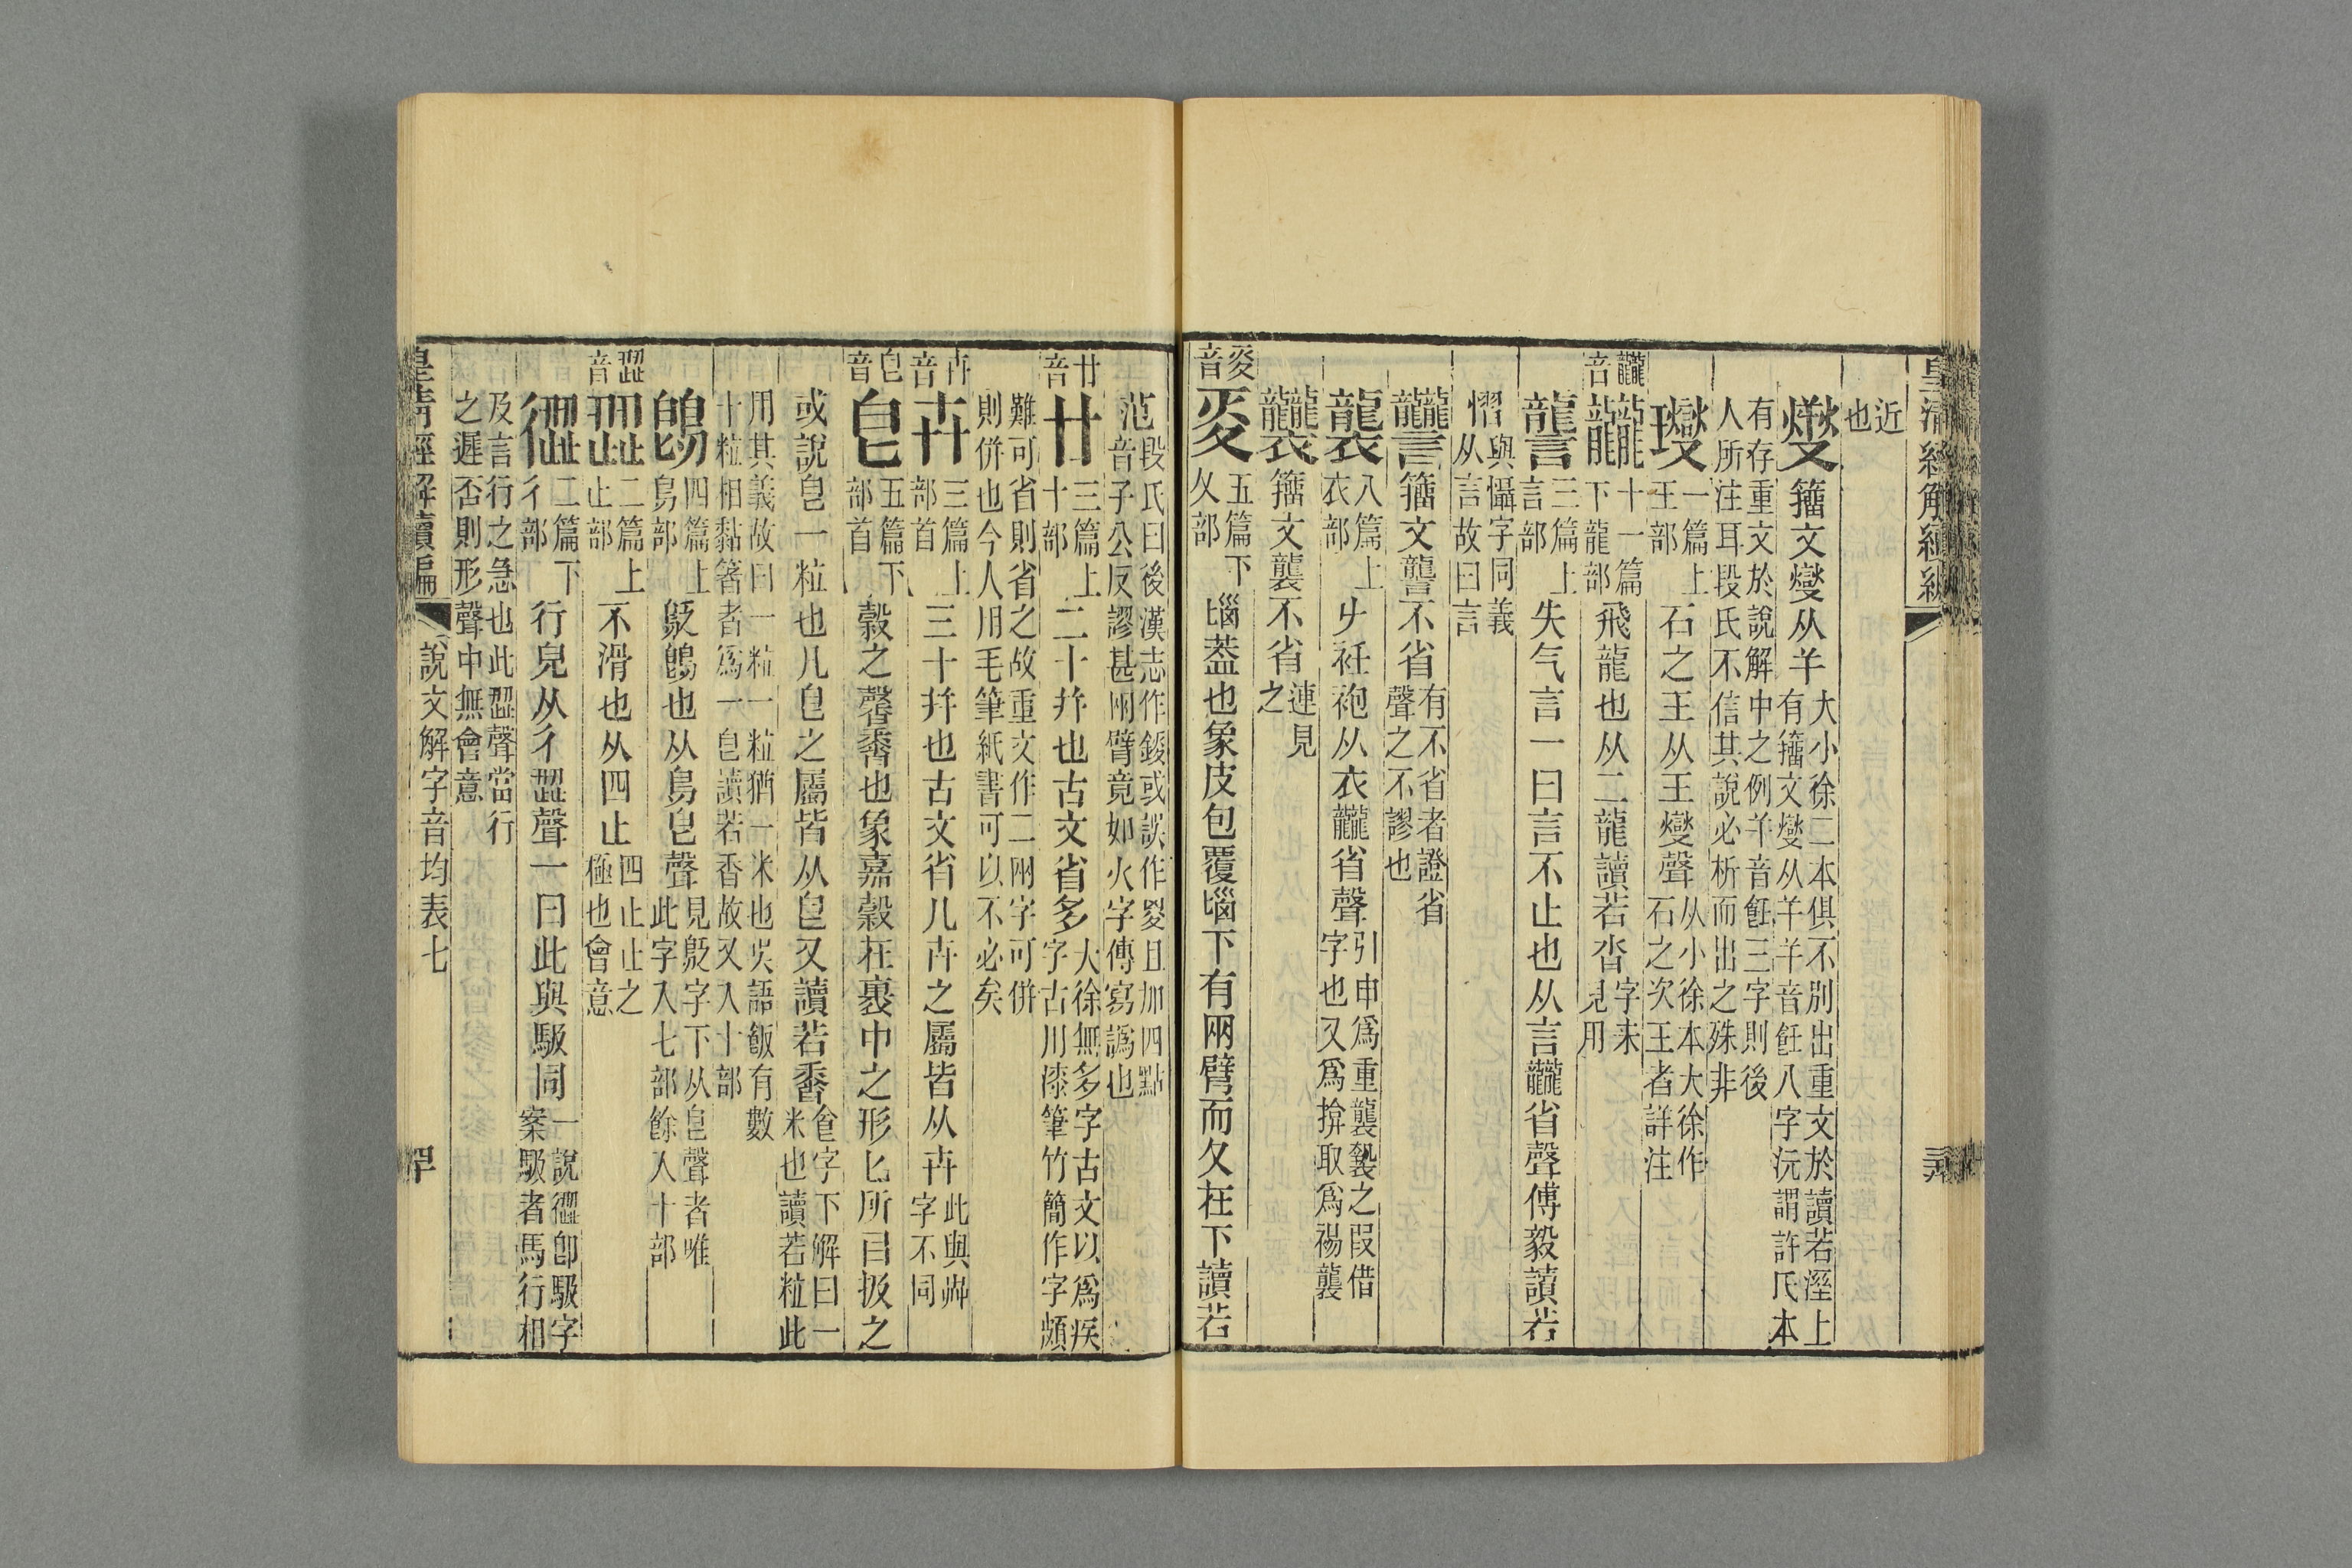 皇清經解續編
近也
燮籒文燮从羊大小徐二本俱不別出重文於讀若溼上有籒文燮从羊羊音飪八字沅謂許氏本
有存重文於說解中之例羊音飪三字則後人所注耳段氏不信其說必析而出之殊非
璎一篇上王部石之王从王燮聲从小徐本大徐作石之次王者詳注
龖音龖十一篇下龍部飛龍也从二龍讀若沓字未見用
讋三篇上言部失气言一曰言不止也从言龖省聲傅毅讀若
慴與懾字同義从言故曰言
讋籒文讋不省有不省者證省聲之不謬也
襲八篇上衣部𠂇衽袍从衣龖省聲引申爲重襲褺之叚借字也又爲揜取爲裼襲
襲籒文襲不省連見之
㚇音㚇五篇下夊部㛴葢也象皮包覆㛴下有兩臂而夊在下讀若
范段氏曰後漢志作鋄或誤作㚇且加四點音子公反謬甚兩臂竟如火字傳寫譌也
廿音廿三篇上十部二十幷也古文省多大徐無多字古文以爲疾字古川漆筆竹簡作字頗
難可省則省之故重文作二兩字可併則併也今人用毛筆紙書可以不必矣
卉音卉三篇上部首三十幷也古文省凡卉之屬皆从卉此與艸字不同
皀音皀五篇下部首榖之馨香也象嘉榖在裹中之形匕所㠯扱之
或說皀一粒也凡皀之屬皆从皀又讀若香䭆字下解曰一米也讀若粒此
用其義故曰一粒一粒猶一米也吳語飯有數十粒相黏箸者爲一皀讀若香故又入十部
鵖四篇上鳥部鴔鵖也从鳥皀聲見鴔字下从皀聲者唯此字入七部餘入十部
歰音歰二篇上止部不滑也从四止四止止之極也會意
𢕬二篇下彳部行皃从彳歰聲一曰此與馺同一說𢕬卽馺字案馺者馬行相
及言行之急也此歰聲當行之遲否則形聲中無會意
皇清經解續編 說文解字音均表七 四十